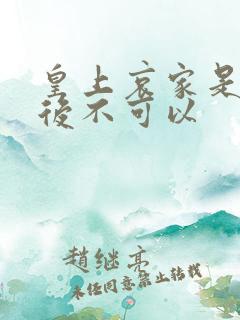 皇上哀家是
後不可以
趙继亭
未经同意禁止转载